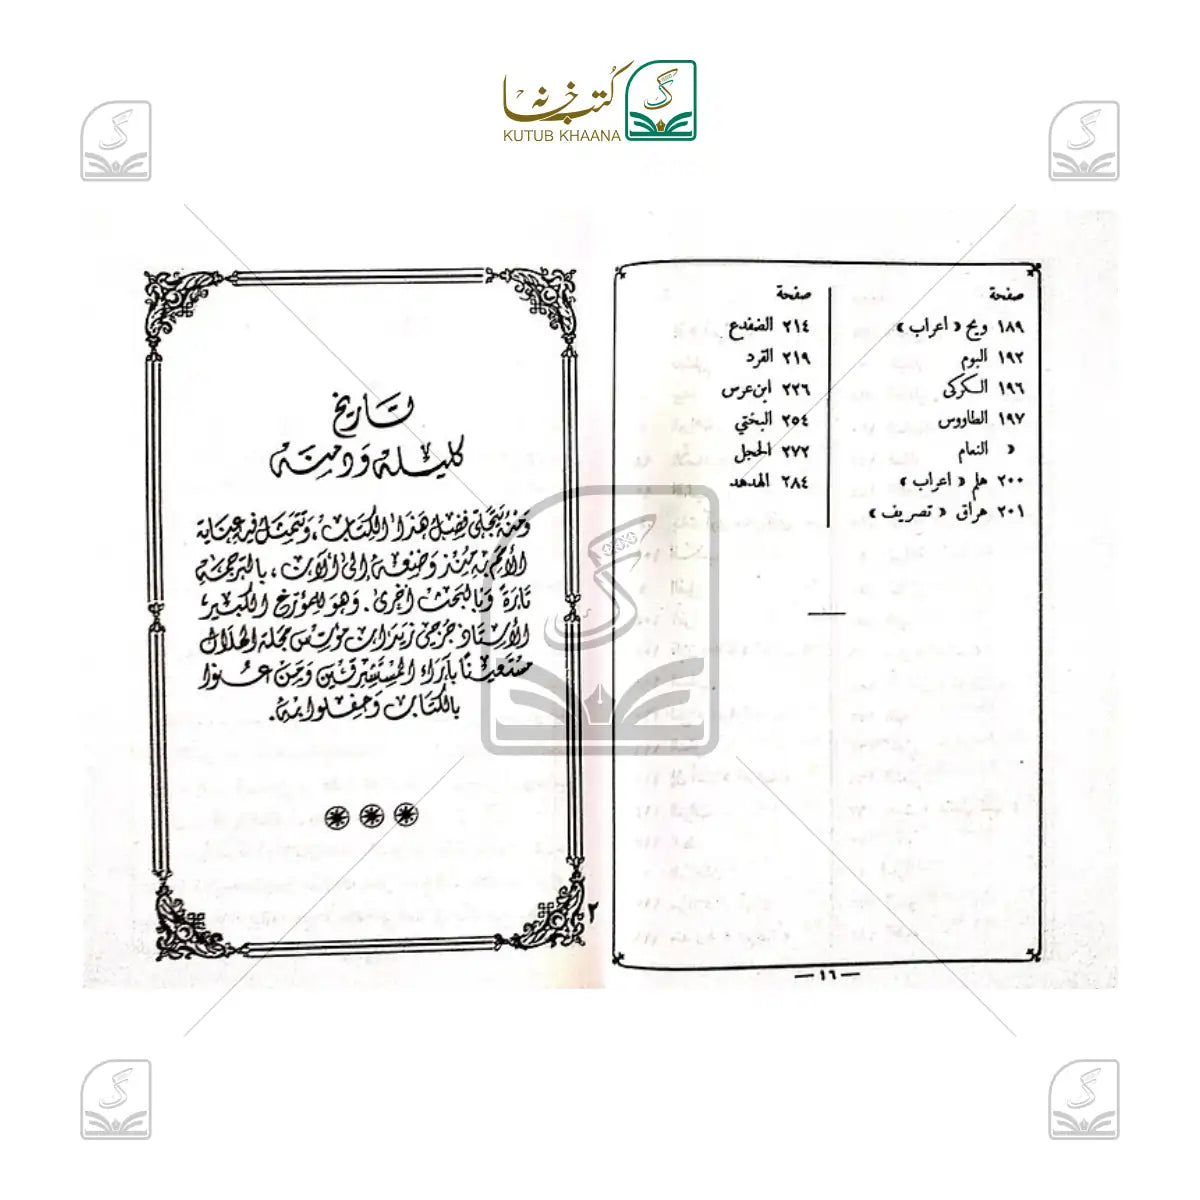 كتب خانہ
KUTUB KHAANA
صفحة
١٨٩ ويح « اعراب »
١٩٢ البوم
١٩٦ الكركى
١٩٧ الطاووس
« النمام
٢٠٠ هلم « اعراب »
٢٠١ هراق « تصريف »
صفحة
٢١٤ الضفدع
٢١٩ القرد
٢٢٦ ابن عرس
٢٥٤ البختي
٢٧٢ الحجل
٢٨٤ الهدهد
— ١٦ —
تاريخ
كليلة ودمنة
ومنه يتجلى فضل هذا الكتاب ، وتتمثل فيه عناية
الأمم به منذ وضعه إلى الآن ، بالترجمة
تارة وبالبحث أخرى . وهو للمؤرخ الكبير
الأستاذ جرجي زيدان مؤسس مجلة الهلال
مستعيناً بآراء المستشرقين ومن عنوا
بالكتاب وحفلوا به .
٢